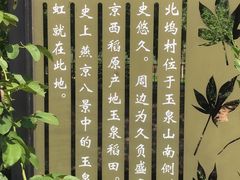 北坞村位于玉泉山南侧
史悠久。周边为久负盛
京西稻原产地玉泉稻田。
史上燕京八景中的玉泉
虹就在此地。